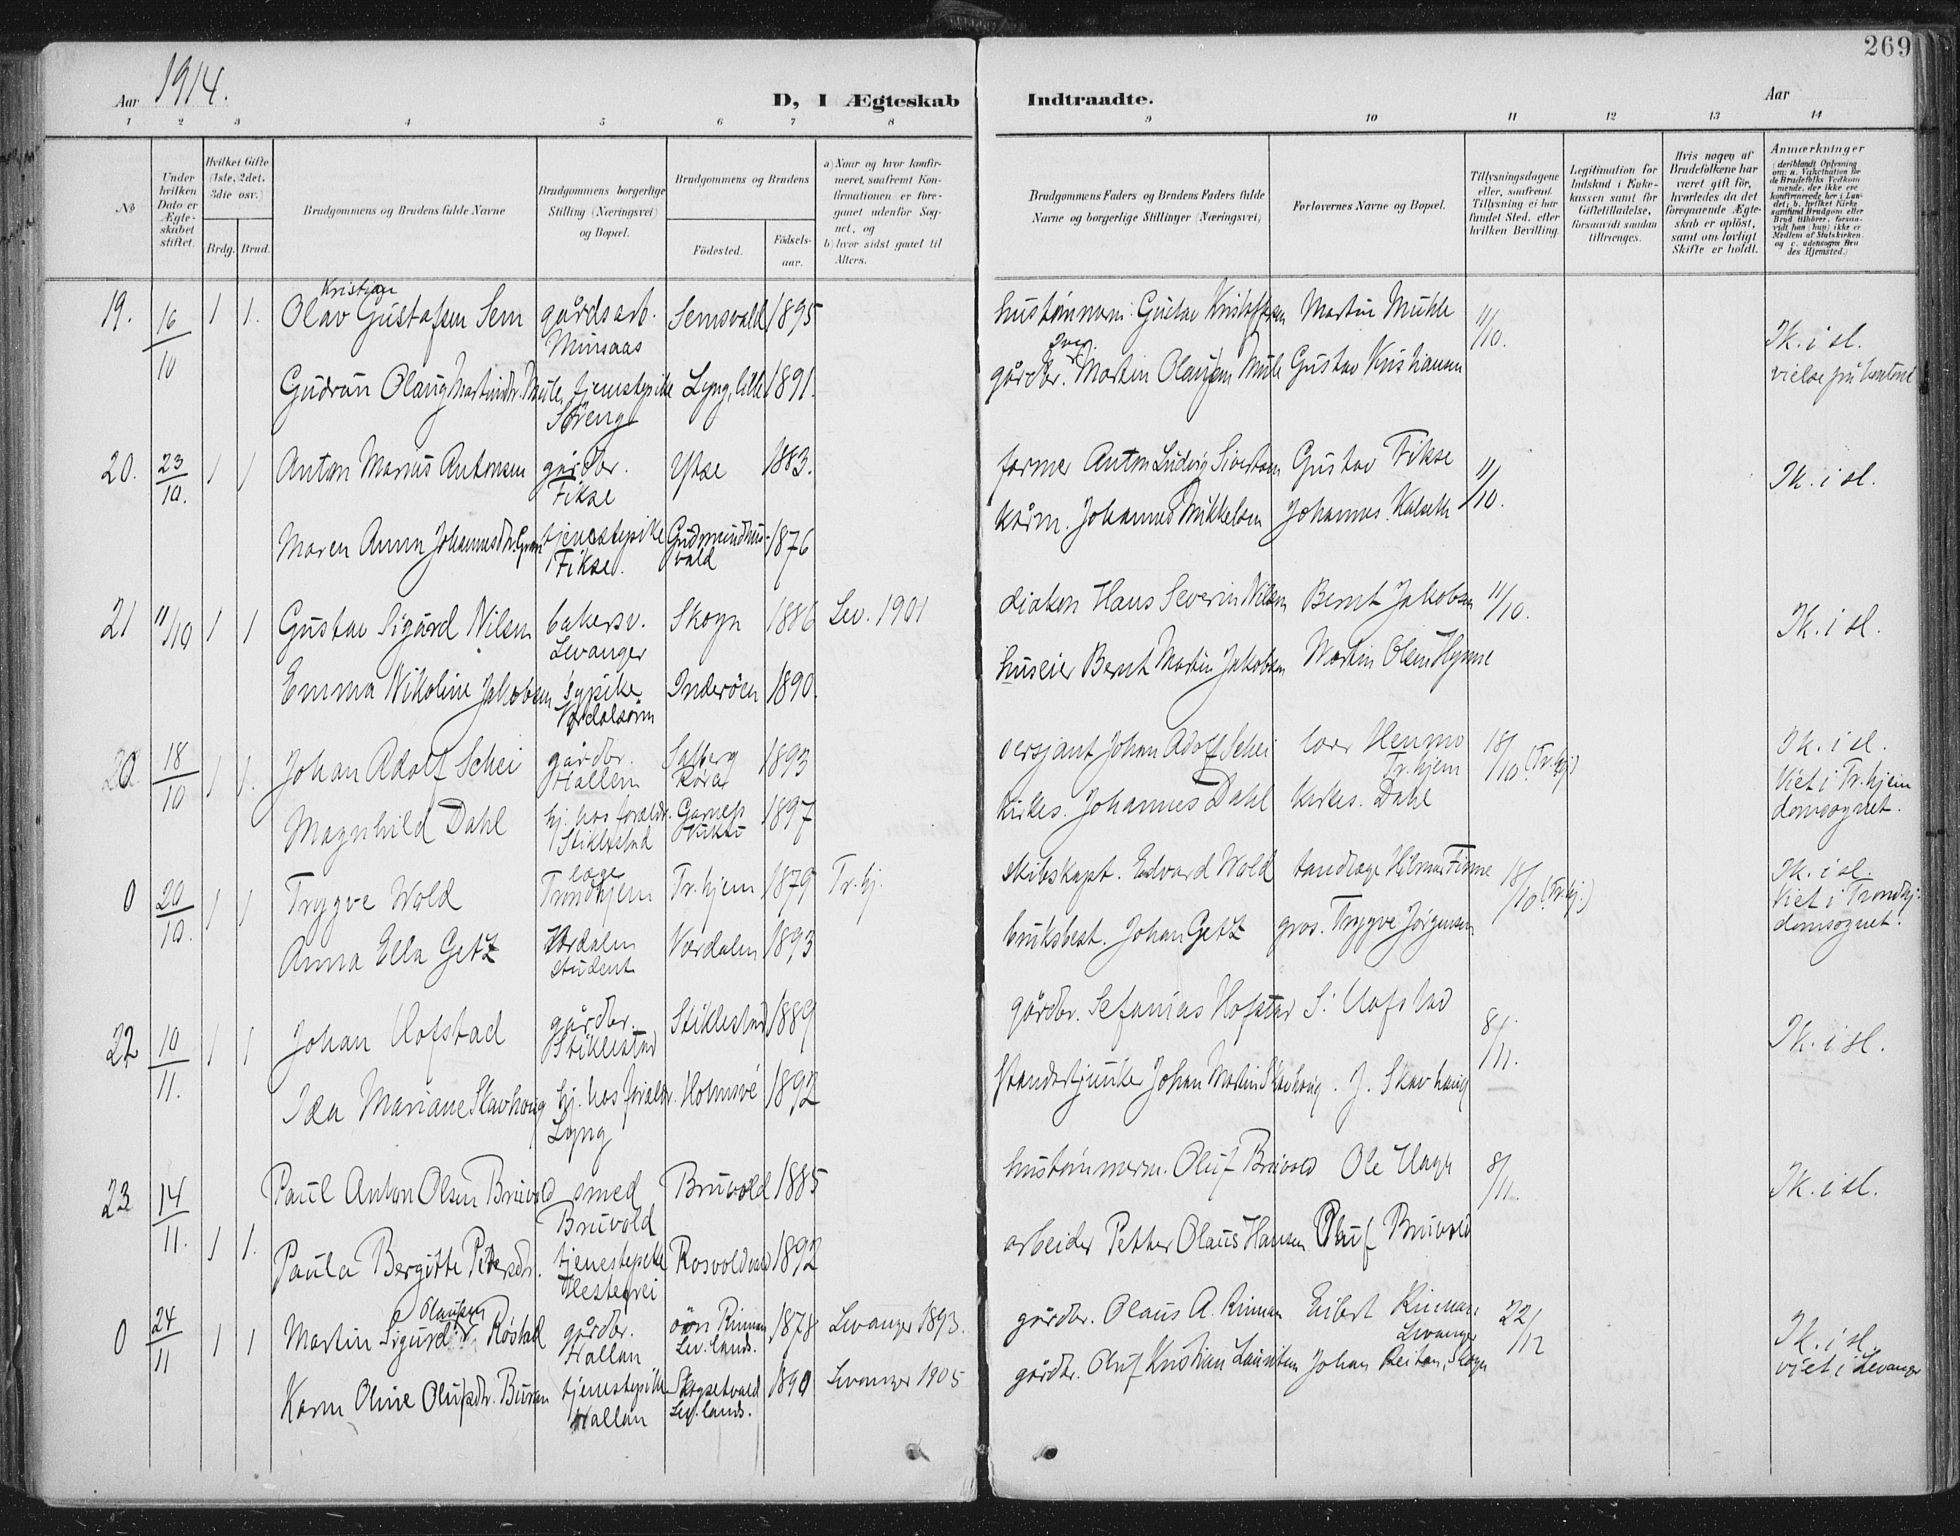 269
Aar 1914.
D, I Ægteskab Indtraadte.
Aar
1 2 3 4 5 6 7 8 9 10 11 12 13 14
No
Under hvilken Dato er Ægteskabet stiftet.
Hvilket Gifte (1ste, 2det, 3die osv.)
Brdg. Brud.
Brudgommens og Brudens fulde Navne
Brudgommens borgerlige Stilling (Næringsvei) og Bopæl.
Brudgommens og Brudens
Fødested.
Fødselsaar.
a) Naar og hvor konfirmeret, saafremt Konfirmationen er foregaaet udenfor Sognet, og
b) hvor sidst gaaet til Alters.
Brudgommens Faders og Brudens Faders fulde Navne og borgerlige Stillinger (Næringsvei)
Forlovernes Navne og Bopæl.
Tillysningsdagene eller, saafremt Tillysning ei har fundet Sted, efter hvilken Bevilling.
Legitimation for Indskud i Enkekassen samt for Giftetilladelse, forsaavidt saadan tiltrænges.
Hvis nogen af Brudefolkene har været gift før, hvorledes da det foregaaende Ægteskab er opløst, samt om lovligt Skifte er holdt.
Anmærkninger
19. 16/10 1 1. Olav Kristian Gustafsen Sem gårdsarb. Minsaas Semsvald 1895 hustømmerm. Gustav Kristoffersen Martin Muhle 11/10. Ik. i sl.
Gudrun Olaug Martinsdtr. Mule tjenestepike Søreng Lyng, lille 1891. gårdbr. Martin Olausen Mule Gustav Kristiansen
20. 23/10. 1 1 Anton Marius Antonsen gårdbr. Fikse Ytse 1883. farmer Anton Ludvig Sivertsen Gustav Fikse 11/10. Ik. i sl.
Maren Anna Johannesdtr. Gran tjenestepike Fikse. Gudmundhusvald 1876 kårm. Johannes Mikkelsen Johannes Kalseth
21 11/10 1 1 Gustav Sigurd Nilsen bakersv. Levanger Skogn 1886 Lev. 1901 diakon Hans Severin Nilsen Bernt Jakobsen 11/10. Ik. i sl.
Emma Nikoline Jakobsen sypike Værdalsøren Inderøen 1890. huseier Bernt Martin Jakobsen Martin Olsen Hynne
20 18/10 1 1. Johan Adolf Schei gårdbr. Hallem Salberg Røra 1893 sersjant Johan Adolf Schei Henmo Tr.hjem 18/10 (Tr.hj) Ik. i sl. Viet i Tr.hjem domsognet.
Magnhild Dahl hj. hos foreldr. Stiklestad Garnes 1897 kirkes. Johannes Dahl kirkes. Dahl
0 20/10. 1 1 Trygve Wold læge Trondhjem Tr.hjem 1879 Tr.hj. skibskapt. Edvard Wold tandlæge Hilmar Finne 18/10 (Tr.hj.) Ik. i sl. Viet i Trondhj. domsognet.
Anna Ella Getz Værdalen student Værdalen 1893 bruksbest. Johan Getz gros. Trygve Jørgensen
22 10/11. 1 1 Johan Hofstad gårdbr. Stiklestad Stiklestad 1889 gårdbr. Sefanias Hofstad S. Hofstad 8/11. Ik. i sl.
Ida Mariane Skavhaug hj. hos foreldr. Lyng Holmsvé 1892 Standartjunker Johan Martin Skavhaug. J. Skavhaug
23 14/11. 1 1. Paul Anton Olsen Bruvold smed Bruvold Bruvold 1885 hustømmerm. Oluf Bruvold Ole Hage 8/11. Ik. i sl.
Paula Bergitte Petersdtr. tjenestepike Hestegrei Rosvoldvald 1892 arbeider Petter Olaus Hansen Oluf Bruvold
0 24/11 1 1 Martin Sigurd Olausen Røstad gårdbr. Hallan Rinnan Lev. lands. 1878 Levanger 1893. gårdbr. Olaus A. Rinnan Eibert Rinnan Levanger 22/12 Ik. i sl. viet i Levanger
Karen Oline Olufsdtr. Buran tjenestepike Hallan Lev. lands. 1890 Levanger 1905 gårdbr. Oluf Kristian Lauritsen Johan Reitan, Skogn